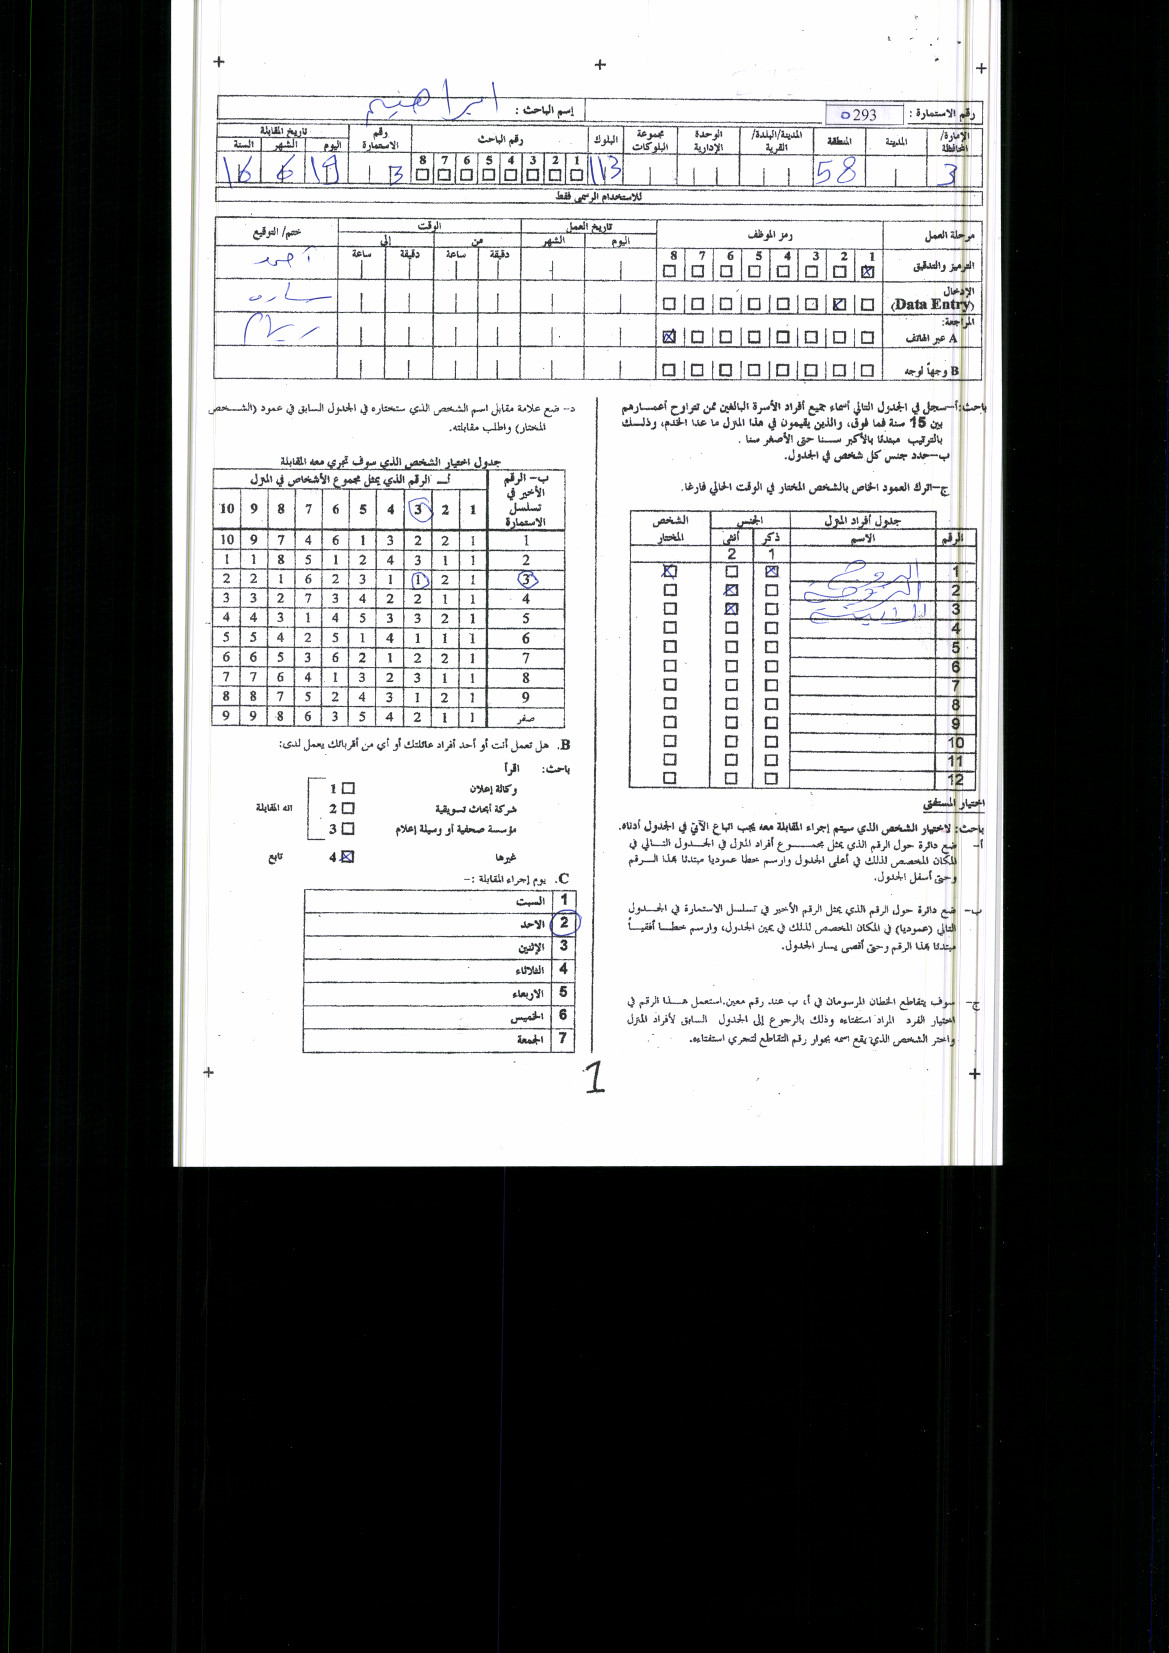 رقم الاستمارة : 0293
إسم الباحث : ابراهيم
الإمارة/المحافظة المدينة المنطقة المدينة/البلدة/القرية الوحدة الإدارية مجموعة البلوكات البلوك رقم الباحث رقم الاستمارة تاريخ المقابلة
اليوم الشهر السنة
1 2 3 4 5 6 7 8
3 58 113 3 19 6 16
للاستخدام الرسمي فقط
مرحلة العمل رمز الموظف تاريخ العمل الوقت ختم/ التوقيع
اليوم الشهر من إلى
1 2 3 4 5 6 7 8 دقيقة ساعة دقيقة ساعة
الترميز والتدقيق أحمد
الإدخال (Data Entry) ساره
المراجعة:
A عبر الهاتف ريم
B وجهاً لوجه
باحث: أ-سجل في الجدول التالي أسماء جميع أفراد الأسرة البالغين ممن تتراوح أعمــارهم
بين 15 سنة فما فوق، والذين يقيمون في هذا المنزل ما عدا الخدم، وذلــك
بالترتيب مبتدئا بالأكبر ســنا حتى الأصغر سنا .
ب-حدد جنس كل شخص في الجدول.
ج-اترك العمود الخاص بالشخص المختار في الوقت الحالي فارغا.
جدول أفراد المنزل الجنس الشخص المختار
الرقم الاسم ذكر أنثى
1 2
1 الزوج
2 الزوجة
3 الابنة
4
5
6
7
8
9
10
11
12
اختيار المستفتى
باحث: لاختيار الشخص الذي سيتم إجراء المقابلة معه يجب اتباع الآتي في الجدول أدناه.
أ- ضع دائرة حول الرقم الذي يمثل مجمــــوع أفراد المنزل في الجــدول التــالي في
المكان المخصص لذلك في أعلى الجدول وارسم خطا عموديا مبتدئا بهذا الــرقم
وحتى أسفل الجدول.
ب- ضع دائرة حول الرقم الذي يمثل الرقم الأخير في تسلسل الاستمارة في الجــدول
التالي (عموديا) في المكان المخصص لذلك في يمين الجدول، وارسم خطــا أفقيــاً
مبتدئا بهذا الرقم وحتى أقصى يسار الجدول.
ج- سوف يتقاطع الخطان المرسومان في أ، ب عند رقم معين.استعمل هــذا الرقم في
اختيار الفرد المراد استفتاءه وذلك بالرجوع إلى الجدول السابق لأفراد المنزل
واختر الشخص الذي يقع اسمه بجوار رقم التقاطع لتجري استفتاءه.
د- ضع علامة مقابل اسم الشخص الذي ستختاره في الجدول السابق في عمود (الشــخص
المختار) واطلب مقابلته.
جدول اختيار الشخص الذي سوف تجري معه المقابلة
ب- الرقم الأخير في تسلسل الاستمارة أــ الرقم الذي يمثل مجموع الأشخاص في المنزل
1 2 3 4 5 6 7 8 9 10
1 1 2 2 3 1 6 4 7 9 10
2 1 1 3 4 2 1 5 8 1 1
3 1 2 1 1 3 2 6 1 2 2
4 1 1 2 2 4 3 7 2 3 3
5 1 2 3 3 5 4 1 3 4 4
6 1 1 1 4 1 5 2 4 5 5
7 1 2 2 1 2 6 3 5 6 6
8 1 1 3 2 3 1 4 6 7 7
9 1 2 1 3 4 2 5 7 8 8
صفر 1 1 2 4 5 3 6 8 9 9
B. هل تعمل أنت أو أحد أفراد عائلتك أو أي من أقربائك يعمل لدى:
باحث: اقرأ
وكالة إعلان 1
شركة أبحاث تسويقية 2 انه المقابلة
مؤسسة صحفية أو وسيلة إعلام 3
غيرها 4 تابع
C. يوم إجراء المقابلة :-
1 السبت
2 الأحد
3 الإثنين
4 الثلاثاء
5 الأربعاء
6 الخميس
7 الجمعة
1